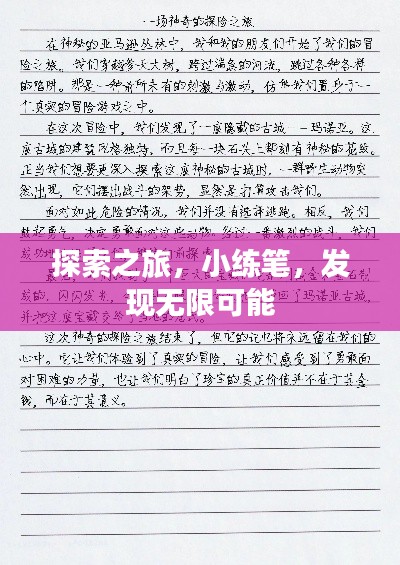 一场神奇的探险之旅
在神秘的亚马逊丛林中，我和我的朋友们开始了我们的冒
险之旅。我们穿越参天大树，跨过湍急的河流，跳过各种各样
的陷阱。那是一种前所未有的刺激与激动，仿佛我们置身于一
个真实的冒险游戏之中。
在这次冒险中，我们发现了一座隐藏的古城——玛诺亚。这
座古城的建筑风格独特，而且每一块石头上都刻有神秘的花纹。
正当我们想要更深入探索这座神秘的古城时，一群野生动物突
然出现，它们摆出战斗的架势，显然是打算攻击我们。
面对如此危险的情况，我们并没有选择逃跑。相反，我们
探索之旅，小练笔，发
现无限可能
这次神奇的探险之旅结束了，但它的记忆将永远留在我们的
心中。它让我们体验到了真实的冒险，让我们感受到了勇敢面
对困难的力量，也让我们明白了珍宝的真正价值并不在于其金
钱，而在于其意义。